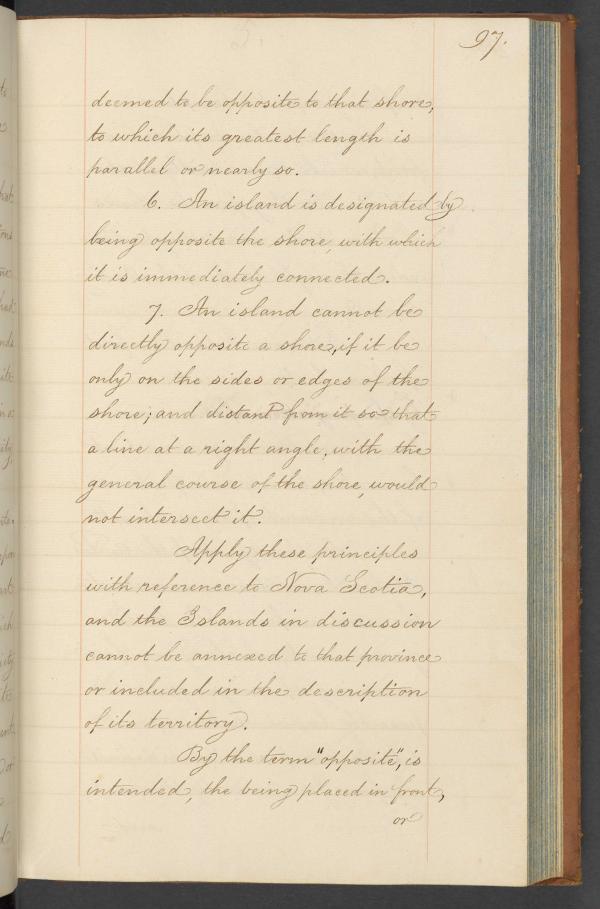 97.
deemed to be opposite to that shore,
to which its greatest length is
parallel or nearly so.
6. An island is designated by
being opposite the shore, with which
it is immediately connected.
7. An island cannot be
directly opposite a shore, if it be
only on the sides or edges of the
shore; and distant from it so that
a line at a right angle, with the
general course of the shore, would
not intersect it.
Apply these principles
with reference to Nova Scotia,
and the Islands in discussion
cannot be annexed to that province
or included in the description
of its territory.
By the term "opposite", is
intended, the being placed in front,
or